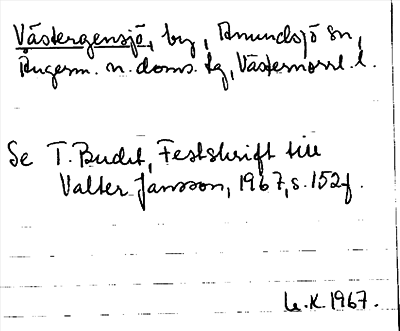 Västergensjö, by, Anundsjö sn,
Ångerm. n. doms. tg, Västernorrl. l.
Se T. Bucht, Festskrift till
Valter Jansson, 1967, s. 152f.
L.K. 1967.